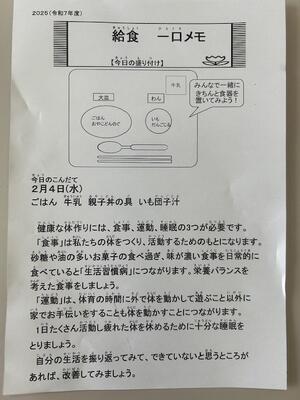 2025(令和7年度)
給食 一口メモ
【今日の盛り付け】
牛乳
大皿
わん
みんなで一緒に
きちんと食器を
置いてみよう!
ごはん
おやこどんのぐ
いも
だんごじる
今日のこんだて
2月4日(水)
ごはん 牛乳 親子丼の具 いも団子汁
健康な体作りには、食事、運動、睡眠の3つが必要です。
「食事」は私たちの体をつくり、活動するためのもとになります。
砂糖や油の多いお菓子の食べ過ぎ、味が濃い食事を日常的に
食べていると「生活習慣病」につながります。栄養バランスを
考えた食事をしましょう。
「運動」は、体育の時間に外で体を動かして遊ぶこと以外に
家でお手伝いをすることも体を動かすことにつながります。
1日たくさん活動し疲れた体を休めるために十分な睡眠を
とりましょう。
自分の生活を振り返ってみて、できていないと思うところが
あれば、改善してみましょう。